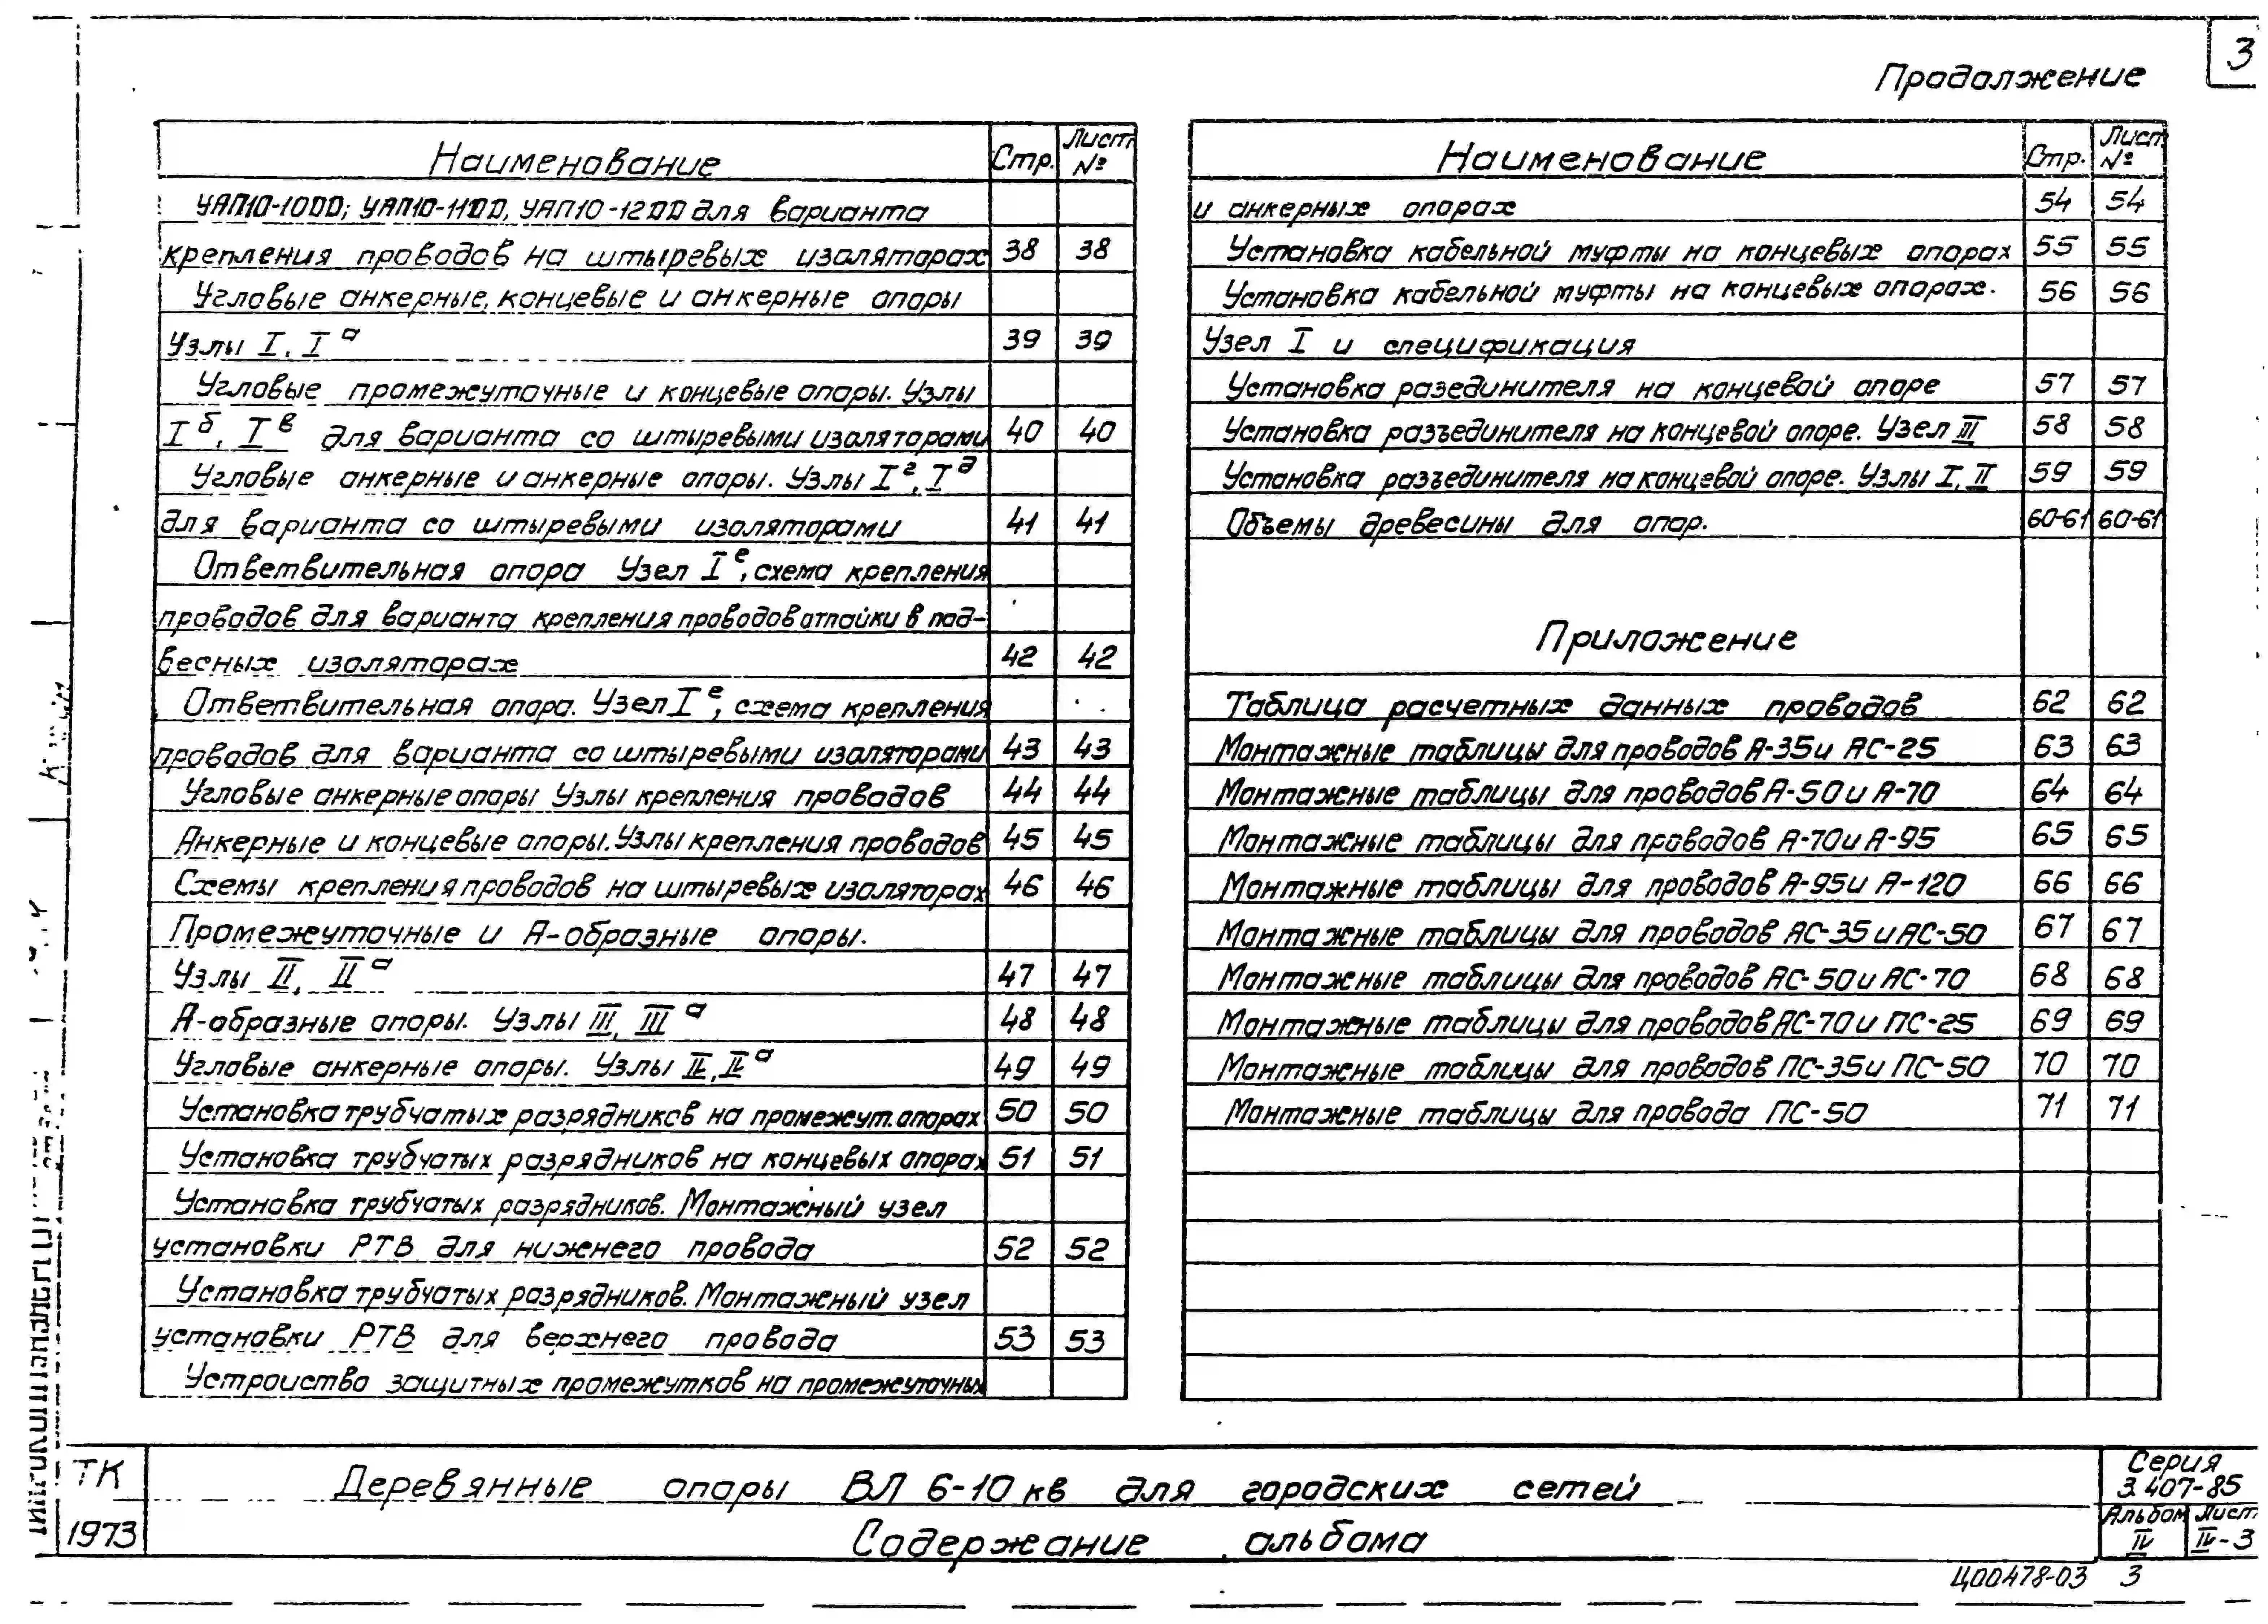 3
Продолжение
Наименование Стр. Лист №
УАП10-10ДД; УАП10-11ДД, УАП10-12ДД для варианта
крепления проводов на штыревых изоляторах 38 38
Угловые анкерные, концевые и анкерные опоры
Узлы I, Iа 39 39
Угловые промежуточные и концевые опоры. Узлы
Iб, Iв для варианта со штыревыми изоляторами 40 40
Угловые анкерные и анкерные опоры. Узлы Iг, Iд
для варианта со штыревыми изоляторами 41 41
Ответвительная опора Узел Iе, схема крепления
проводов для варианта крепления проводов отпайки в под-
весных изоляторах 42 42
Ответвительная опора. Узел Iе, схема крепления
проводов для варианта со штыревыми изоляторами 43 43
Угловые анкерные опоры Узлы крепления проводов 44 44
Анкерные и концевые опоры. Узлы крепления проводов 45 45
Схемы крепления проводов на штыревых изоляторах 46 46
Промежуточные и А-образные опоры.
Узлы II, IIа 47 47
А-образные опоры. Узлы III, IIIа 48 48
Угловые анкерные опоры. Узлы II, IIа 49 49
Установка трубчатых разрядников на промежут. опорах 50 50
Установка трубчатых разрядников на концевых опорах 51 51
Установка трубчатых разрядников. Монтажный узел
установки РТВ для нижнего провода 52 52
Установка трубчатых разрядников. Монтажный узел
установки РТВ для верхнего провода 53 53
Устроиство защитных промежутков на промежуточных
Наименование Стр. Лист №
и анкерных опорах 54 54
Установка кабельной муфты на концевых опорах 55 55
Установка кабельной муфты на концевых опорах. 56 56
Узел I и спецификация
Установка разединителя на концевой опоре 57 57
Установка разъединителя на концевой опоре. Узел III 58 58
Установка разъединителя на концевой опоре. Узлы I, II 59 59
Объемы древесины для опор. 60-61 60-61
Приложение
Таблица расчетных данных проводов 62 62
Монтажные таблицы для проводов А-35 и АС-25 63 63
Монтажные таблицы для проводов А-50 и А-70 64 64
Монтажные таблицы для проводов А-70 и А-95 65 65
Монтажные таблицы для проводов А-95 и А-120 66 66
Монтажные таблицы для проводов АС-35 и АС-50 67 67
Монтажные таблицы для проводов АС-50 и АС-70 68 68
Монтажные таблицы для проводов АС-70 и ПС-25 69 69
Монтажные таблицы для проводов ПС-35 и ПС-50 70 70
Монтажные таблицы для провода ПС-50 71 71
ТК
1973
Деревянные опоры ВЛ 6-10 кв для городских сетей
Содержание альбома
Серия
3.407-85
Альбом Лист
IV IV-3
Ц00478-03 3